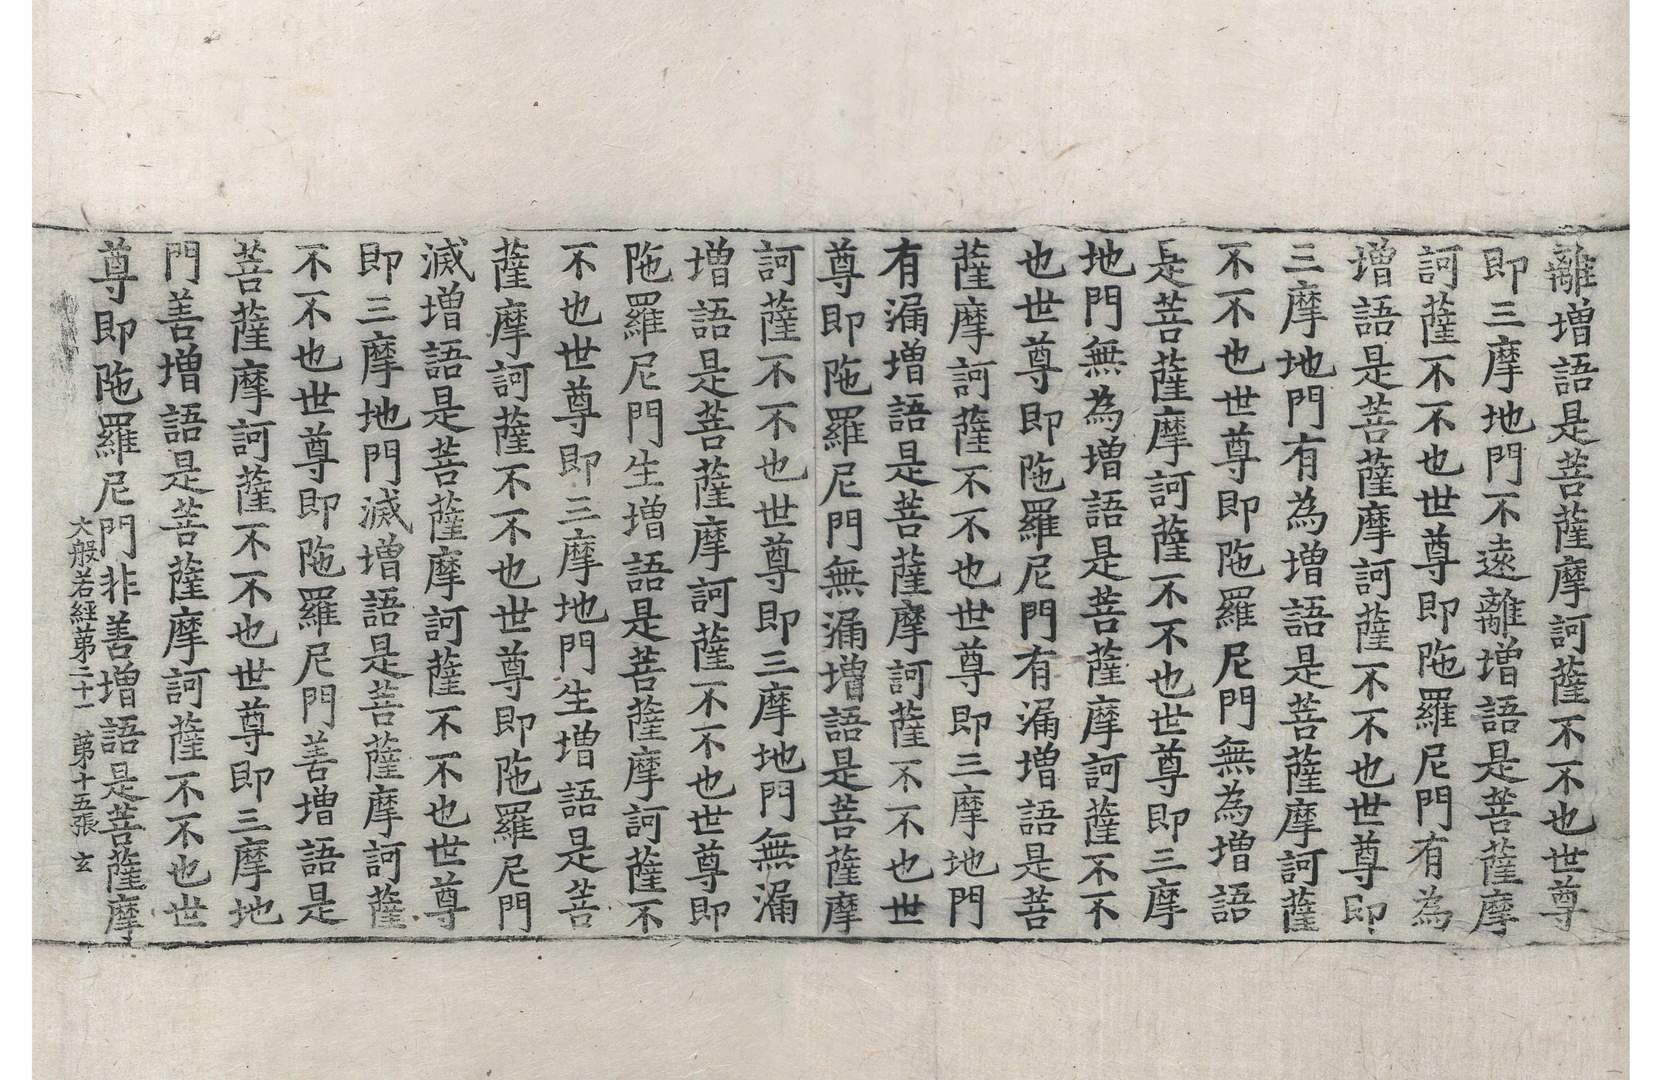 離增語是菩薩摩訶薩不不也世尊
即三摩地門不遠離增語是菩薩摩
訶薩不不也世尊即陁羅尼門有為
增語是菩薩摩訶薩不不也世尊即
三摩地門有為增語是菩薩摩訶薩
不不也世尊即陁羅尼門無為增語
是菩薩摩訶薩不不也世尊即三摩
地門無為增語是菩薩摩訶薩不不
也世尊即陁羅尼門有漏增語是菩
薩摩訶薩不不也世尊即三摩地門
有漏增語是菩薩摩訶薩不不也世
尊即陁羅尼門無漏增語是菩薩摩
訶薩不不也世尊即三摩地門無漏
增語是菩薩摩訶薩不不也世尊即
陁羅尼門生增語是菩薩摩訶薩不
不也世尊即三摩地門生增語是菩
薩摩訶薩不不也世尊即陁羅尼門
滅增語是菩薩摩訶薩不不也世尊
即三摩地門滅增語是菩薩摩訶薩
不不也世尊即陁羅尼門善增語是
菩薩摩訶薩不不也世尊即三摩地
門善增語是菩薩摩訶薩不不也世
尊即陁羅尼門非善增語是菩薩摩
大般若經苐二十一 苐十五張 玄